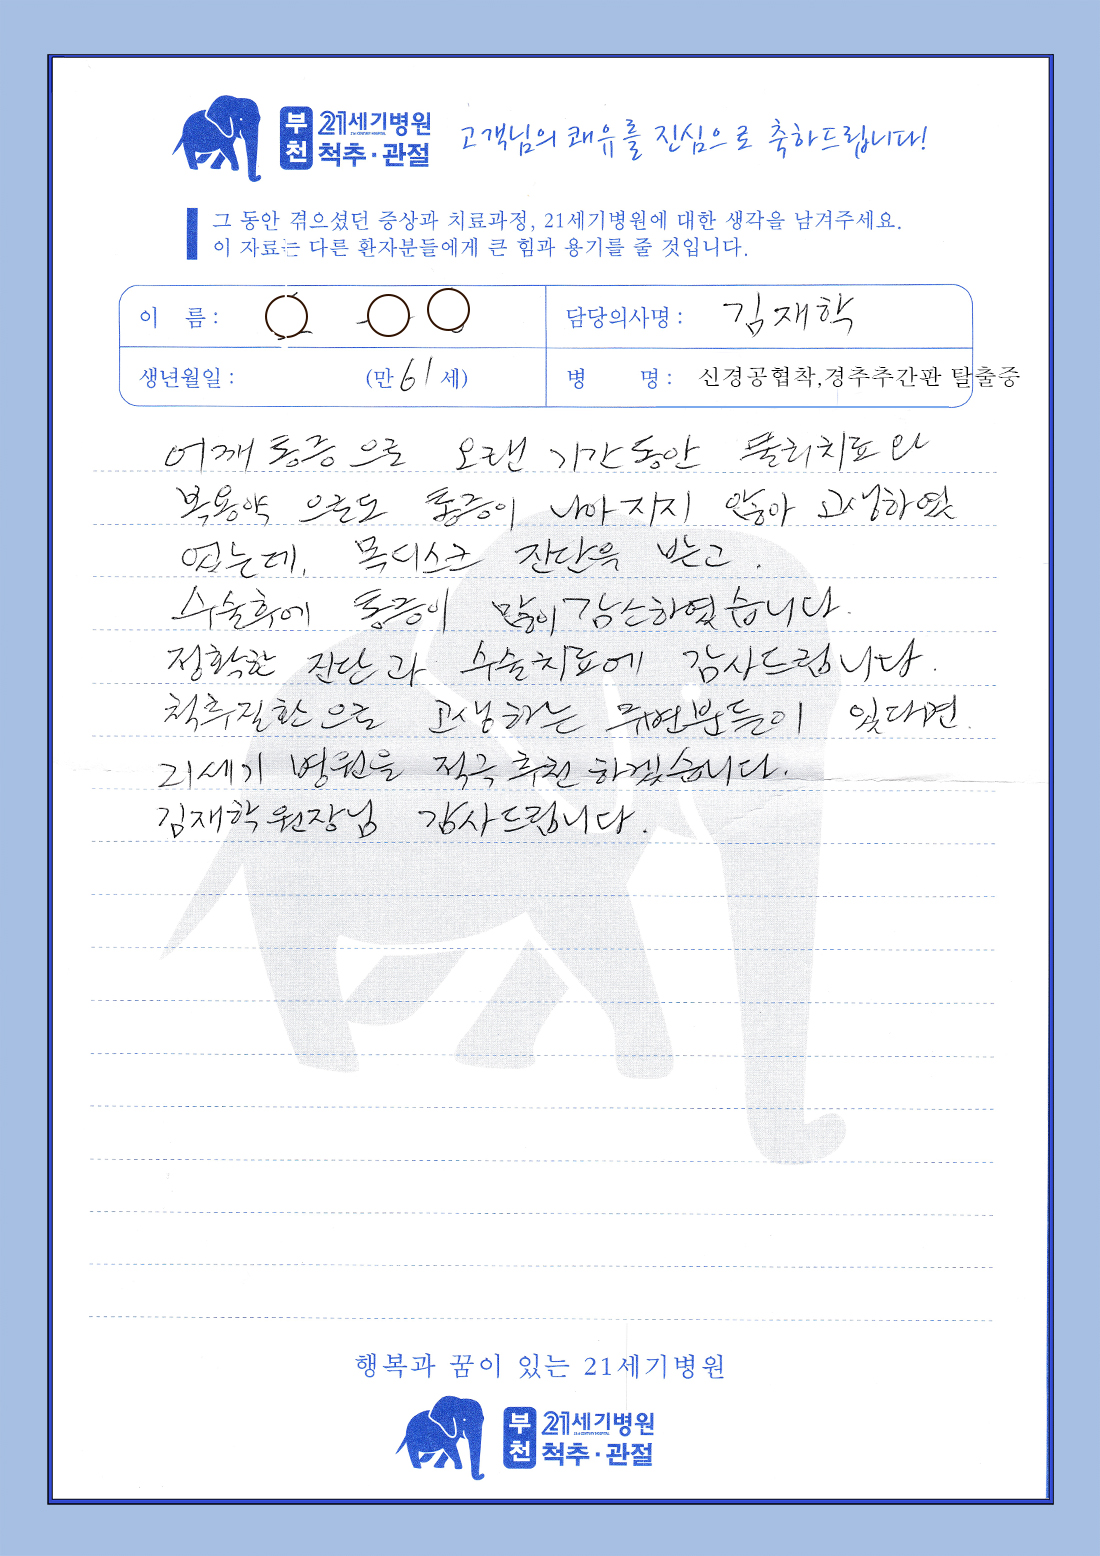 부천 21세기병원 척추·관절
고객님의 쾌유를 진심으로 축하드립니다!
그 동안 겪으셨던 증상과 치료과정, 21세기병원에 대한 생각을 남겨주세요.
이 자료는 다른 환자분들에게 큰 힘과 용기를 줄 것입니다.
이 름 : 담당의사명 : 김재학
생년월일 : (만 61 세) 병 명 : 신경공협착,경추추간판 탈출증
어깨 통증 으로 오랜 기간 동안 물리치료 와
복용약 으로도 통증이 나아지지 않아 고생하였
었는데, 목디스크 진단을 받고.
수술후에 통증이 많이 감소하였습니다.
정확한 진단과 수술치료에 감사드립니다.
척추질환으로 고생하는 주변분들이 있다면.
21세기 병원을 적극 추천 하겠습니다.
김재학 원장님 감사드립니다.
행복과 꿈이 있는 21세기병원
부천 21세기병원 척추·관절